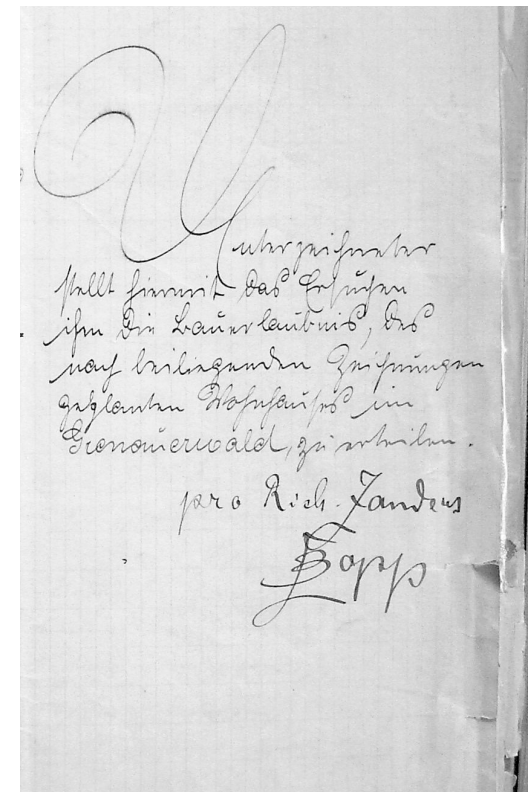 Unterzeichneter
stellt hiermit das Ersuchen
ihm die Bauerlaubnis, des
nach beiliegenden Zeichnungen
geplanten Wohnhauses im
Gronauerwald, zu erteilen.
pro Rich. Zanders
Bopp